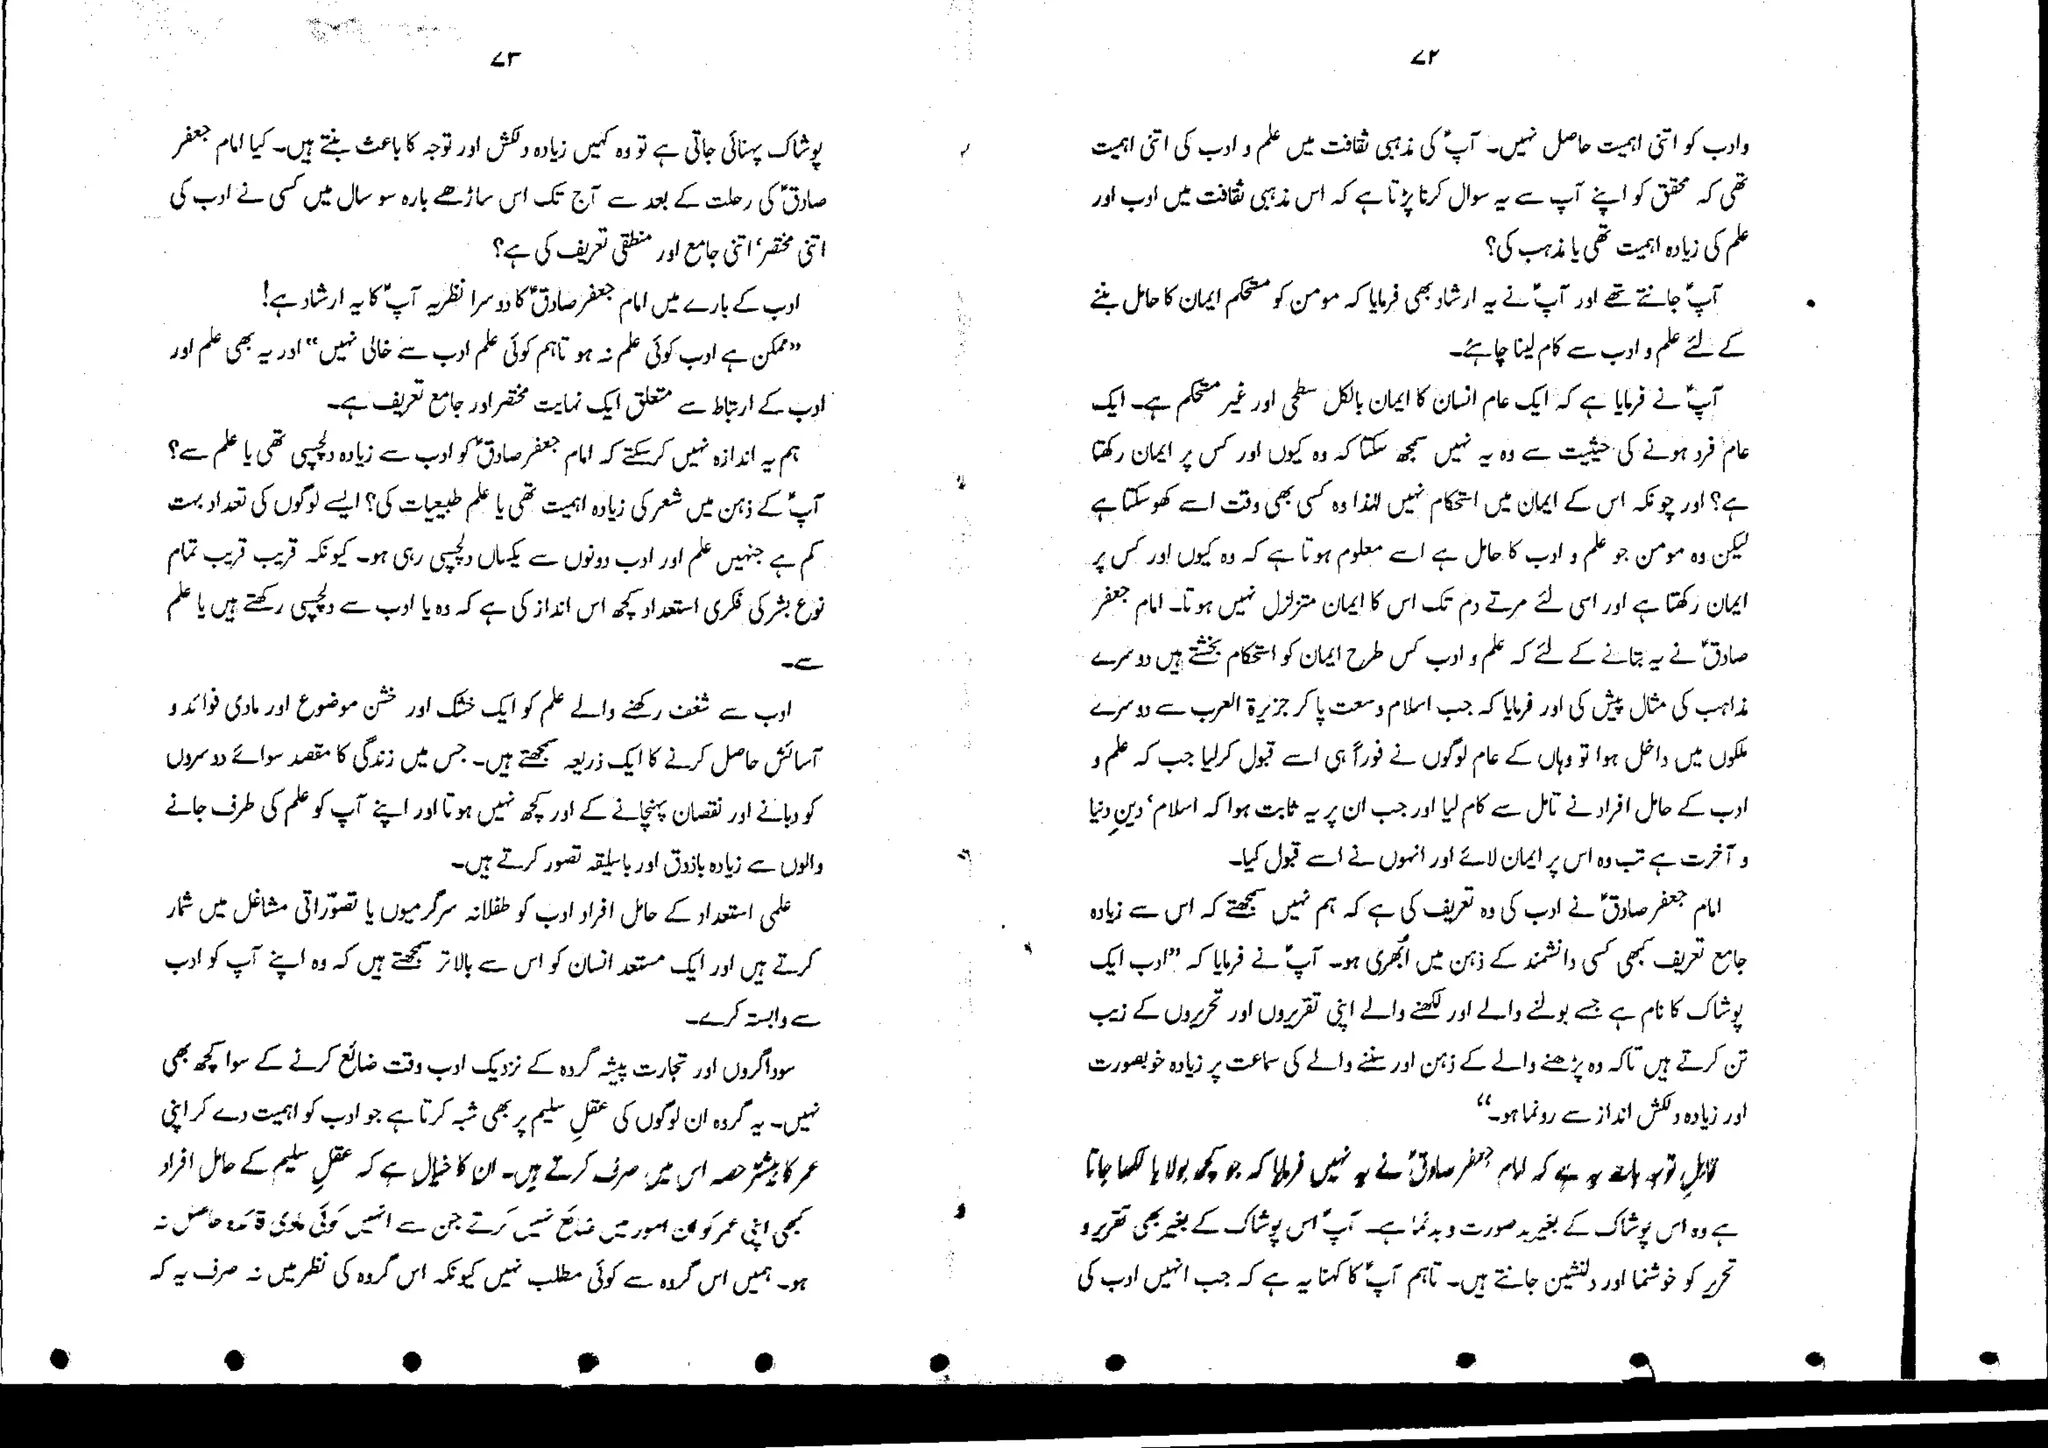 ۷۲
وادب کو اتنی اہمیت حاصل نہیں۔ آپؑ کی مذہبی ثقافت میں علم و ادب کی اتنی اہمیت
تھی کہ محقق کو اپنے آپ سے یہ سوال کرنا پڑتا ہے کہ اس مذہبی ثقافت میں ادب اور
علم کی زیادہ اہمیت تھی یا مذہب کی؟
آپؑ جانتے تھے اور آپؑ نے یہ ارشاد بھی فرمایا کہ مومن کو مستحکم ایمان کا حامل بننے
کے لئے علم و ادب سے کام لینا چاہئے۔
آپؑ نے فرمایا ہے کہ ایک عام انسان کا ایمان بالکل سطحی اور غیر مستحکم ہے۔ ایک
عام فرد ہونے کی حیثیت سے وہ یہ نہیں سمجھ سکتا کہ وہ کیوں اور کس پر ایمان رکھتا
ہے؟ اور چونکہ اس کے ایمان میں استحکام نہیں لہٰذا وہ کسی بھی وقت اسے کھو سکتا ہے
لیکن وہ مومن جو علم و ادب کا حامل ہے اسے معلوم ہوتا ہے کہ وہ کیوں اور کس پر
ایمان رکھتا ہے اور اسی لئے مرتے دم تک اس کا ایمان متزلزل نہیں ہوتا۔ امام جعفر
صادقؑ نے یہ بتانے کے لئے کہ علم و ادب کس طرح ایمان کو استحکام بخشتے ہیں دوسرے
مذاہب کی مثال پیش کی اور فرمایا کہ جب اسلام وسعت پا کر جزیرۃ العرب سے دوسرے
ملکوں میں داخل ہوا تو وہاں کے عام لوگوں نے فوراً ہی اسے قبول کرلیا جب کہ علم و
ادب کے حامل افراد نے تامل سے کام لیا اور جب ان پر یہ ثابت ہوا کہ اسلام، دینِ دنیا
و آخرت ہے تب وہ اس پر ایمان لائے اور انہوں نے اسے قبول کیا۔
امام جعفر صادقؑ نے ادب کی وہ تعریف کی ہے کہ ہم نہیں سمجھتے کہ اس سے زیادہ
جامع تعریف کبھی کسی دانشمند کے ذہن میں اُبھری ہو۔ آپؑ نے فرمایا کہ ”ادب ایک
پوشاک کا نام ہے جسے بولنے والے اور لکھنے والے اپنی تقریروں اور تحریروں کے زیب
تن کرتے ہیں تاکہ وہ پڑھنے والے کے ذہن اور سننے والے کی سماعت پر زیادہ خوبصورت
اور زیادہ دلکش انداز سے رونما ہو۔“
قابلِ توجہ بات یہ ہے کہ امام جعفر صادقؑ نے یہ نہیں فرمایا کہ جو کچھ بولا یا لکھا جاتا
ہے وہ اس پوشاک کے بغیر بدصورت و بدنما ہے۔ آپؑ اس پوشاک کے بغیر بھی تقریر و
تحریر کو خوشنما اور دلنشین جانتے ہیں۔ تاہم آپؑ کا کہنا یہ ہے کہ جب انہیں ادب کی
۷۳
پوشاک پہنائی جاتی ہے تو وہ کہیں زیادہ دلکش اور توجہ کا باعث بنتے ہیں۔ کیا امام جعفر
صادقؑ کی رحلت کے بعد سے آج تک اس ساڑھے بارہ سو سال میں کسی نے ادب کی
اتنی مختصر، اتنی جامع اور منطقی تعریف کی ہے؟
ادب کے بارے میں امام جعفر صادقؑ کا دوسرا نظریہ آپؑ کا یہ ارشاد ہے!
”ممکن ہے ادب کوئی علم نہ ہو تاہم کوئی علم ادب سے خالی نہیں“ اور یہ بھی علم اور
ادب کے ارتباط سے متعلق ایک نہایت مختصر اور جامع تعریف ہے۔
ہم یہ اندازہ نہیں کرسکتے کہ امام جعفر صادقؑ کو ادب سے زیادہ دلچسپی تھی یا علم سے؟
آپؑ کے ذہن میں شعر کی زیادہ اہمیت تھی یا علم طبیعیات کی؟ ایسے لوگوں کی تعداد بہت
کم ہے جنہیں علم اور ادب دونوں سے یکساں دلچسپی رہی ہو۔ کیونکہ قریب قریب تمام
نوع بشر کی فکری استعداد کچھ اس انداز کی ہے کہ وہ یا ادب سے دلچسپی رکھتے ہیں یا علم
سے۔
ادب سے شغف رکھنے والے علم کو ایک خشک اور خشن موضوع اور مادی فوائد و
آسائش حاصل کرنے کا ایک ذریعہ سمجھتے ہیں۔ جس میں زندگی کا مقصد سوائے دوسروں
کو دبانے اور نقصان پہنچانے کے اور کچھ نہیں ہوتا اور اپنے آپ کو علم کی طرف جانے
والوں سے زیادہ باذوق اور باسلیقہ تصور کرتے ہیں۔
علمی استعداد کے حامل افراد ادب کو طفلانہ سرگرمیوں یا تصوّراتی مشاغل میں شمار
کرتے ہیں اور ایک مستعد انسان کو اس سے بالاتر سمجھتے ہیں کہ وہ اپنے آپ کو ادب
سے وابستہ کرے۔
سوداگروں اور تجارت پیشہ گروہ کے نزدیک ادب وقت ضائع کرنے کے سوا کچھ بھی
نہیں۔ یہ گروہ ان لوگوں کی عقلِ سلیم پر بھی شبہ کرتا ہے جو ادب کو اہمیت دے کر اپنی
عمر کا بیشتر حصہ اس میں صرف کرتے ہیں۔ ان کا خیال ہے کہ عقلِ سلیم کے حامل افراد
کبھی اپنی عمر کو ان امور میں ضائع نہیں کرتے جن سے انہیں کوئی مادی فائدہ حاصل نہ
ہو۔ ہمیں اس گروہ سے کوئی مطلب نہیں کیونکہ اس گروہ کی نظر میں نہ صرف یہ کہ